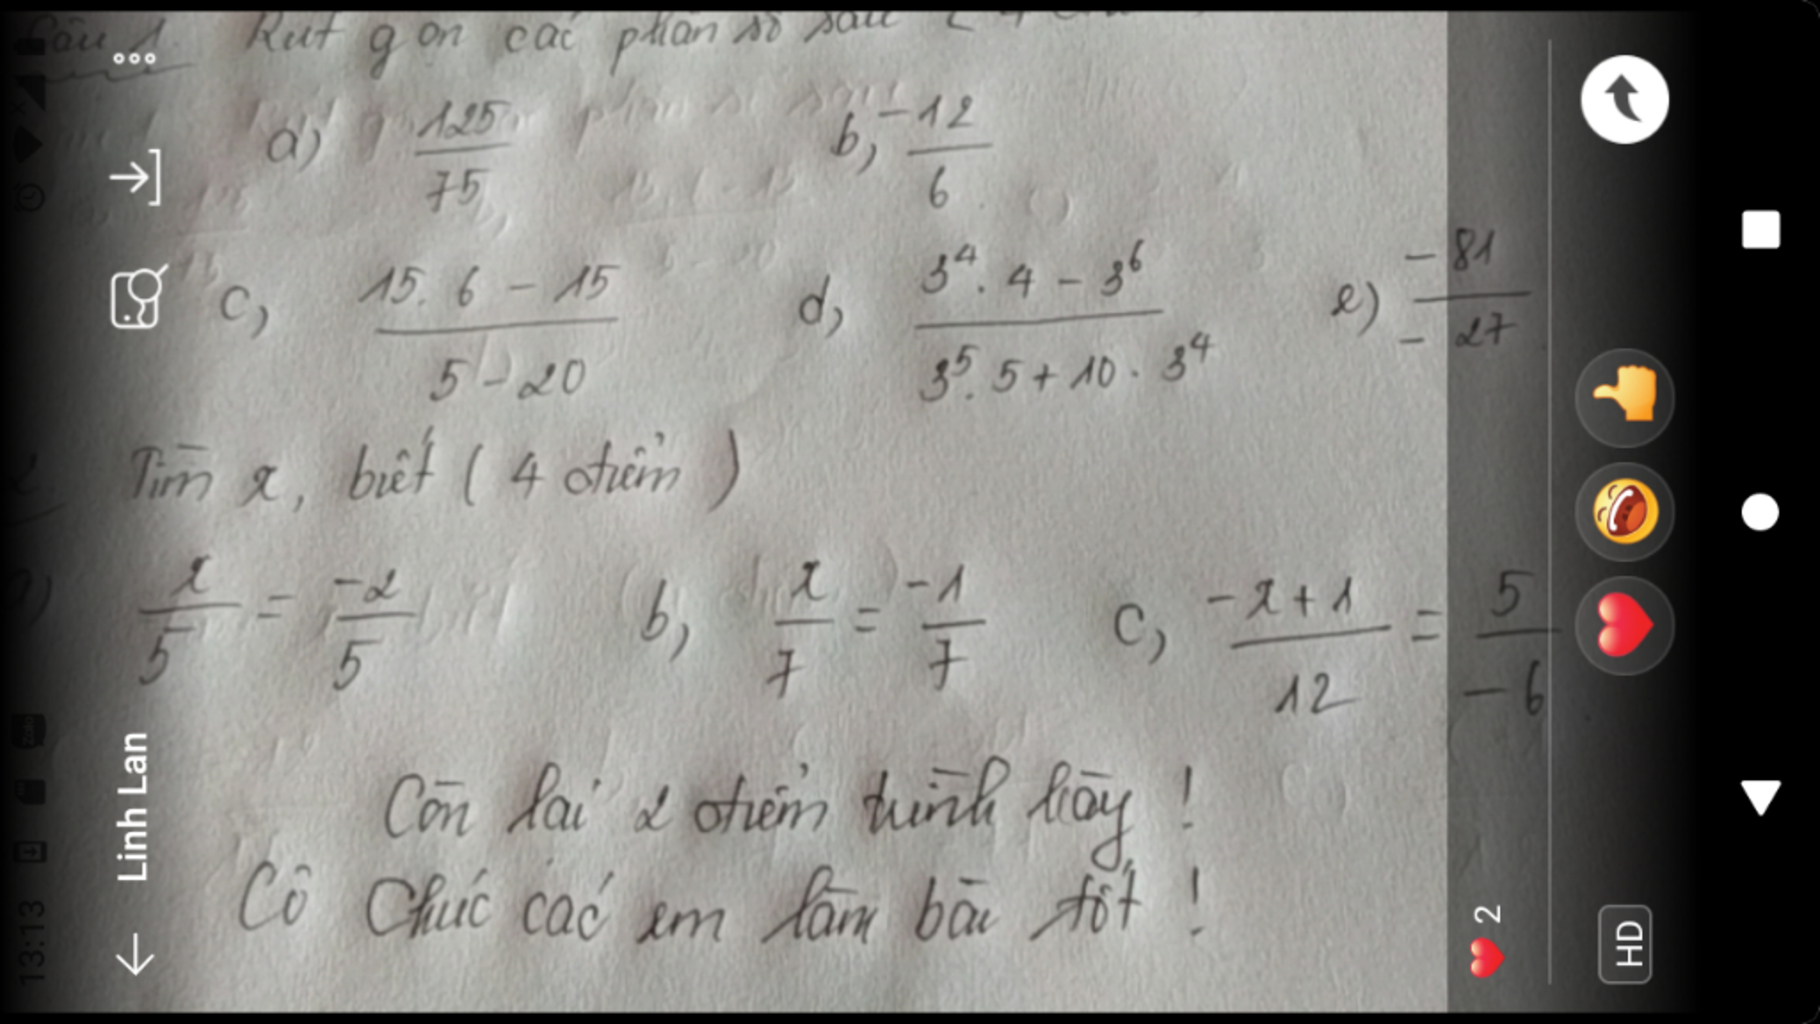 Câu 1. Rút gọn các phân số sau
a) 125/75 b, -12/6
c, (15. 6 - 15)/(5 - 20) d, (3⁴. 4 - 3⁶)/(3⁵. 5 + 10 . 3⁴) e) -81/-27
2. Tìm x, biết ( 4 điểm )
a) x/5 = -2/5 b, x/7 = -1/7 c, (-x + 1)/12 = 5/-6
Còn lại 2 điểm trình bày !
Cô Chúc các em làm bài tốt !
Linh Lan
13:13
2
HD
Zalo